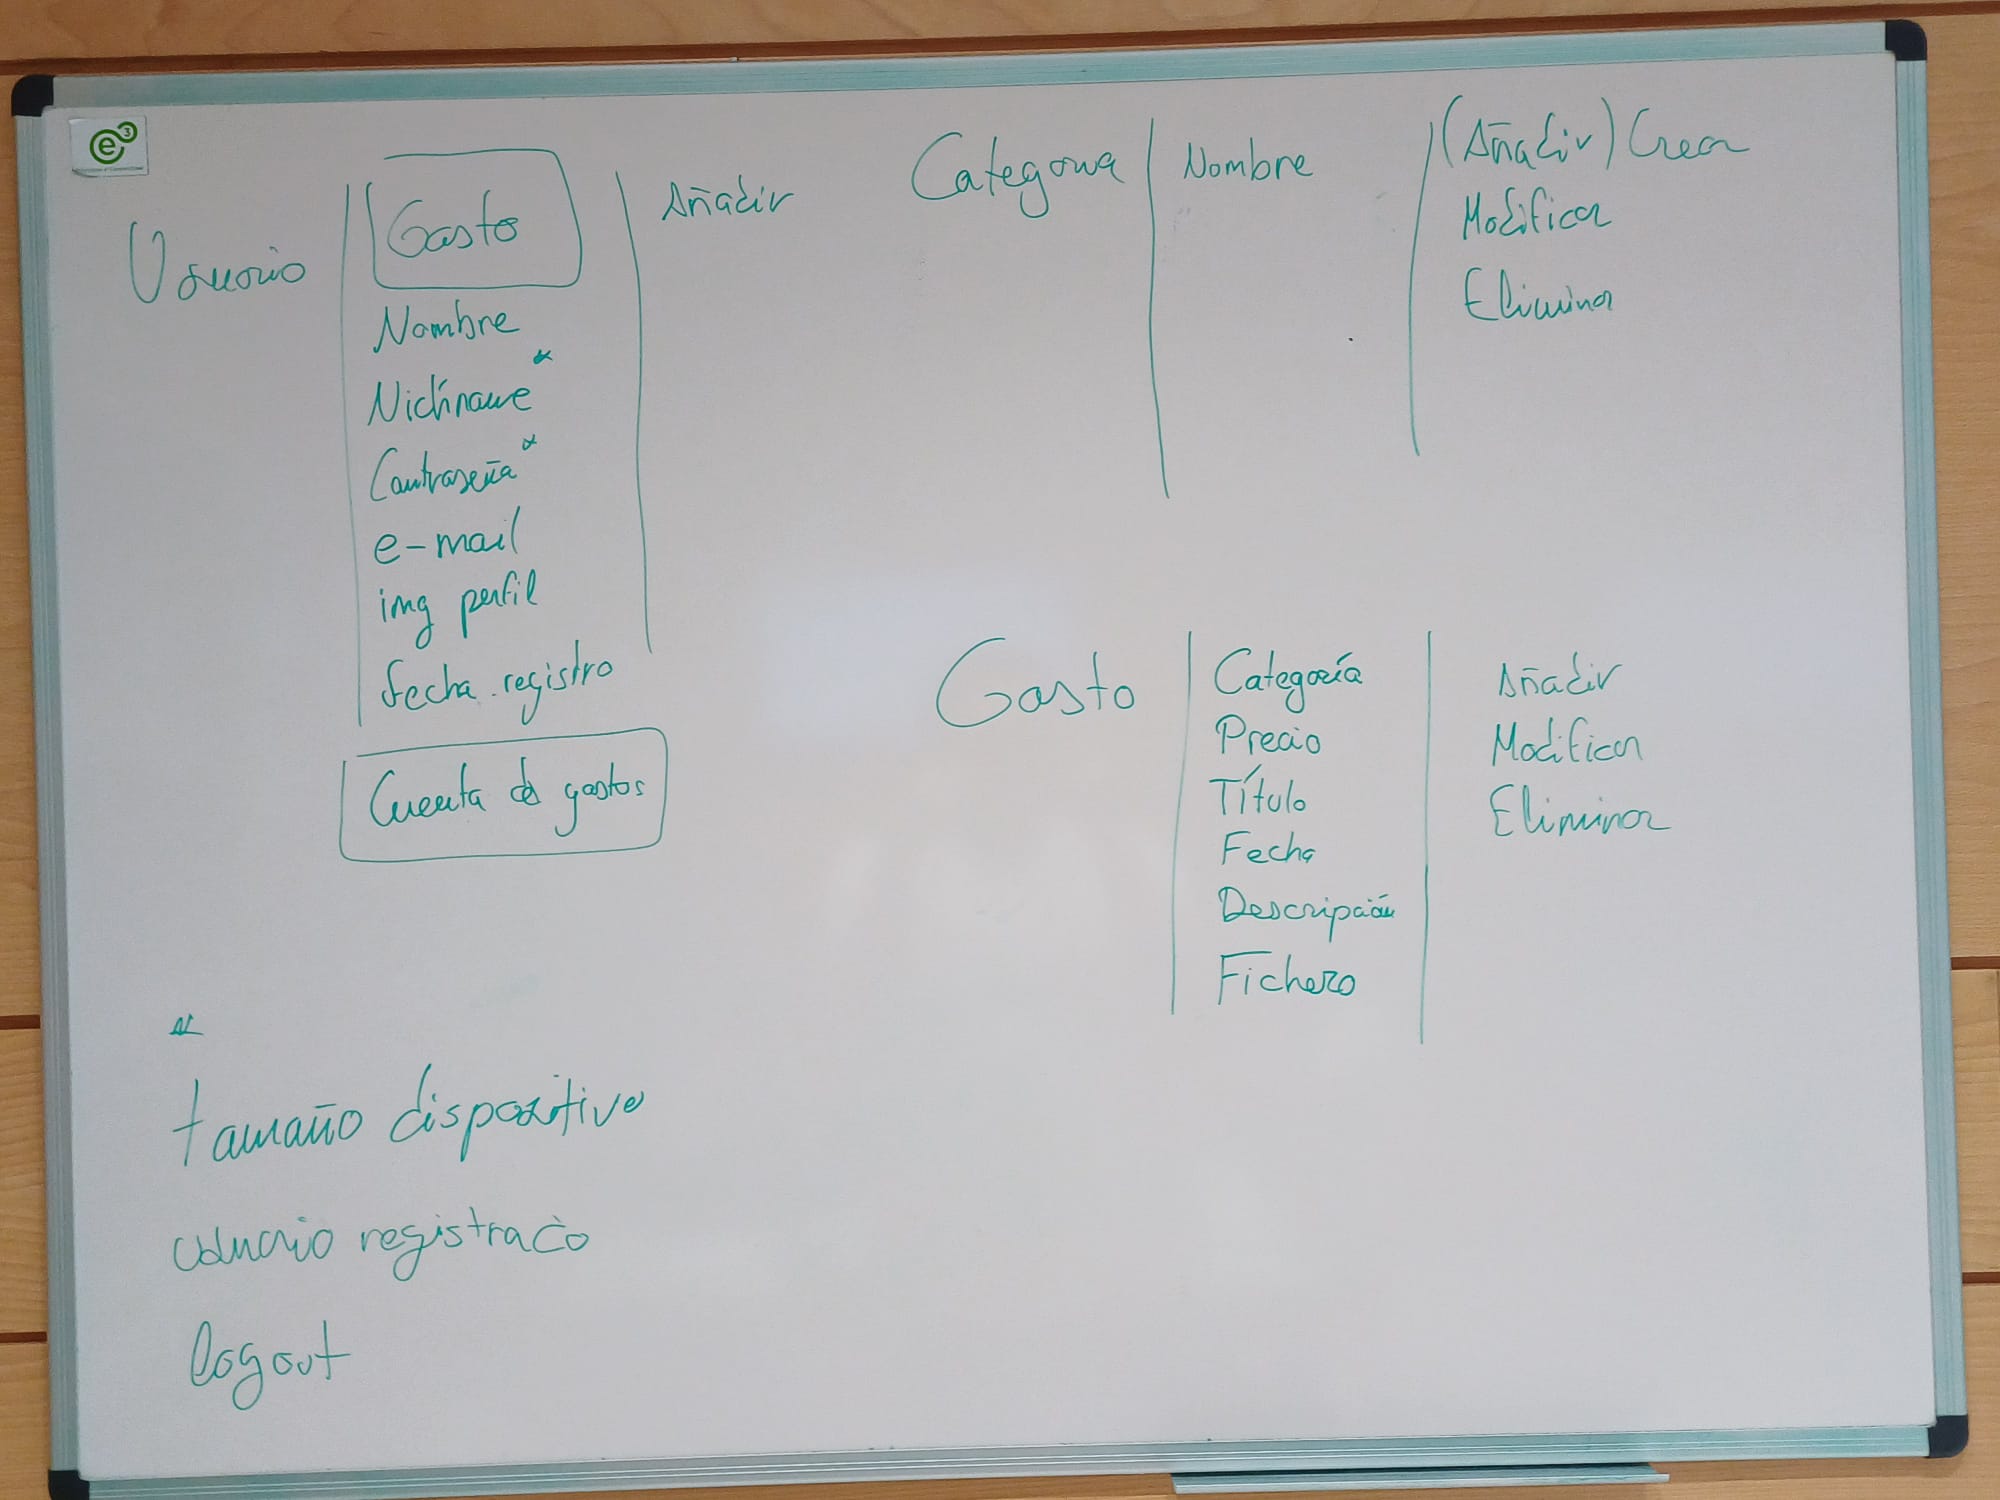 Usuario
Gasto
Nombre
Nickname *
Contraseña *
e-mail
img perfil
fecha registro
Cuenta de gastos
Añadir
Categoria
Nombre
(Añadir) Crear
Modificar
Eliminar
Gasto
Categoría
Precio
Título
Fecha
Descripción
Fichero
Añadir
Modificar
Eliminar
tamaño dispositivo
usuario registrado
logout